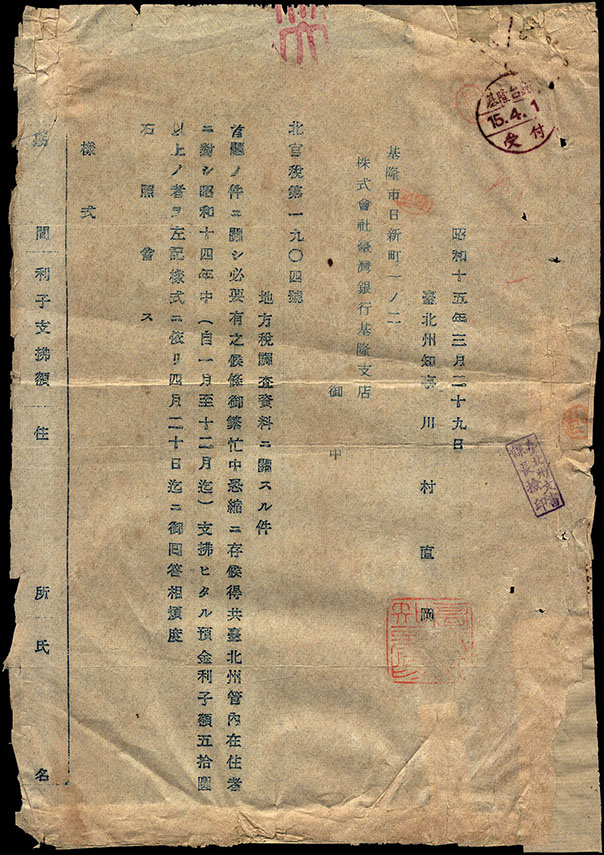 基隆台銀
15.4.1
受付
昭和十五年三月二十九日
臺北州知事川村直岡
基隆市日新町一ノ二
株式會社臺灣銀行基隆支店
御中
北官稅第一九〇四號
地方稅調査資料ニ關スル件
首題ノ件ニ關シ必要有之候條御繁忙中恐縮ニ存候得共臺北州管內在住者
ニ對シ昭和十四年中（自一月至十二月迄）支拂ヒタル預金利子額五拾圓
以上ノ者ヲ左記樣式ニ依リ四月二十日迄ニ御回答相煩度
右照會ス
樣式
利子支拂額 住所 氏名
臺北州文書
課長檢印